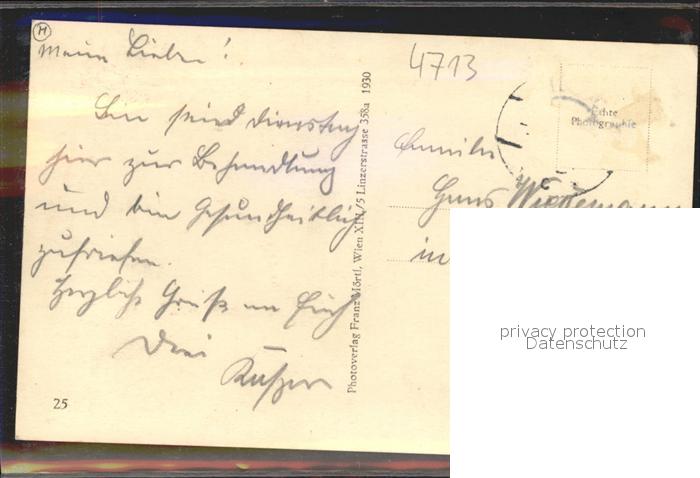 M
Meine Lieben!
Bin seit Dienstag
hier zur Behandlung
und bin Gesundheitlich
zufrieden.
Herzliche Grüße an Euch
Drei
25
Photoverlag Franz Mörtl, Wien XIII/5 Linzerstrasse 358a 1930
4713
Echte
Photographie
Familie
Hans
in
privacy protection
Datenschutz